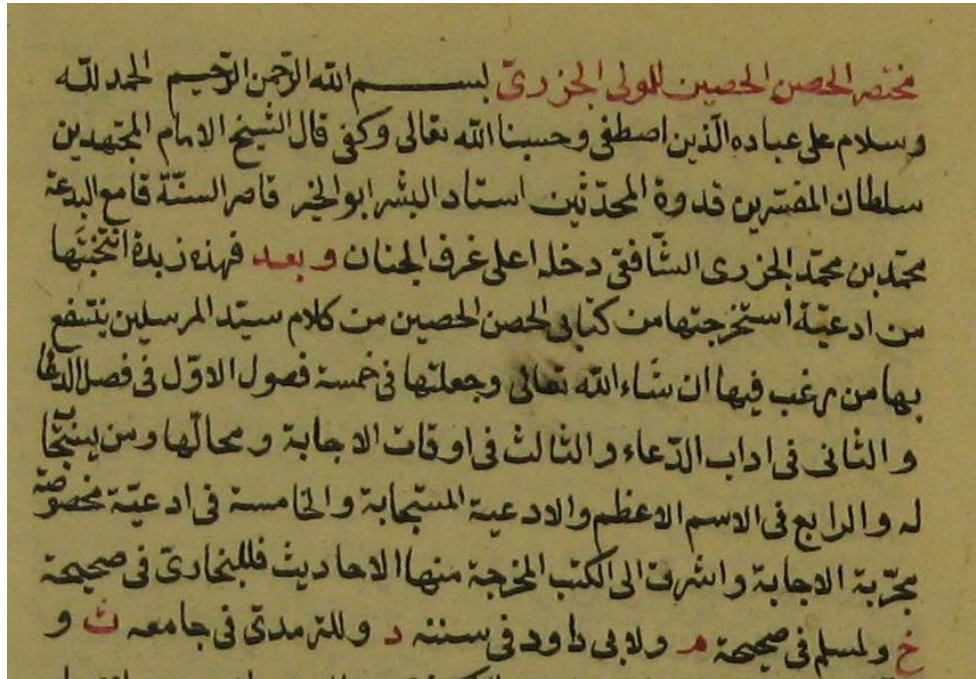 مختصر الحصن الحصين للمولى الجزرىّ بسم الله الرّحمن الرّحيم الحمد للّه
وسلام على عباده الّذين اصطفى وحسبنا اللّه تعالى وكفى قال الشّيخ الامام المجتهدين
سلطان المفسّرين قدوة المحدّثين استاد البشر ابو الخير قاصر السنّة قامع البدعة
محمّد بن محمّد الجزرى الشّافعى دخله اعلى غرف الجنان وبعد فهذه زبدة انتخبتها
من ادعيّة أستخرجتها من كتابى الحصن الحصين من كلام سيّد المرسلين ينتفع
بها من رغب فيها ان شاء اللّه تعالى وجعلتها فى خمسة فصول الاوّل فى فصل الدعا
و الثانى فى اداب الدّعاء و الثالث فى اوقات الاجابة و محالّها ومن
له و الرابع فى الاسم الاعظم والادعية المستجابة و الخامسة فى ادعيّة مخصوصة
مجرّبة الاجابة و اشرت الى الكتب المخرجة منها الاحاديث فللبخارىّ فى صحيحة
خ ولمسلم فى صحيحة م ولابى داود فى سننه د وللترمدىّ فى جامعه ت و